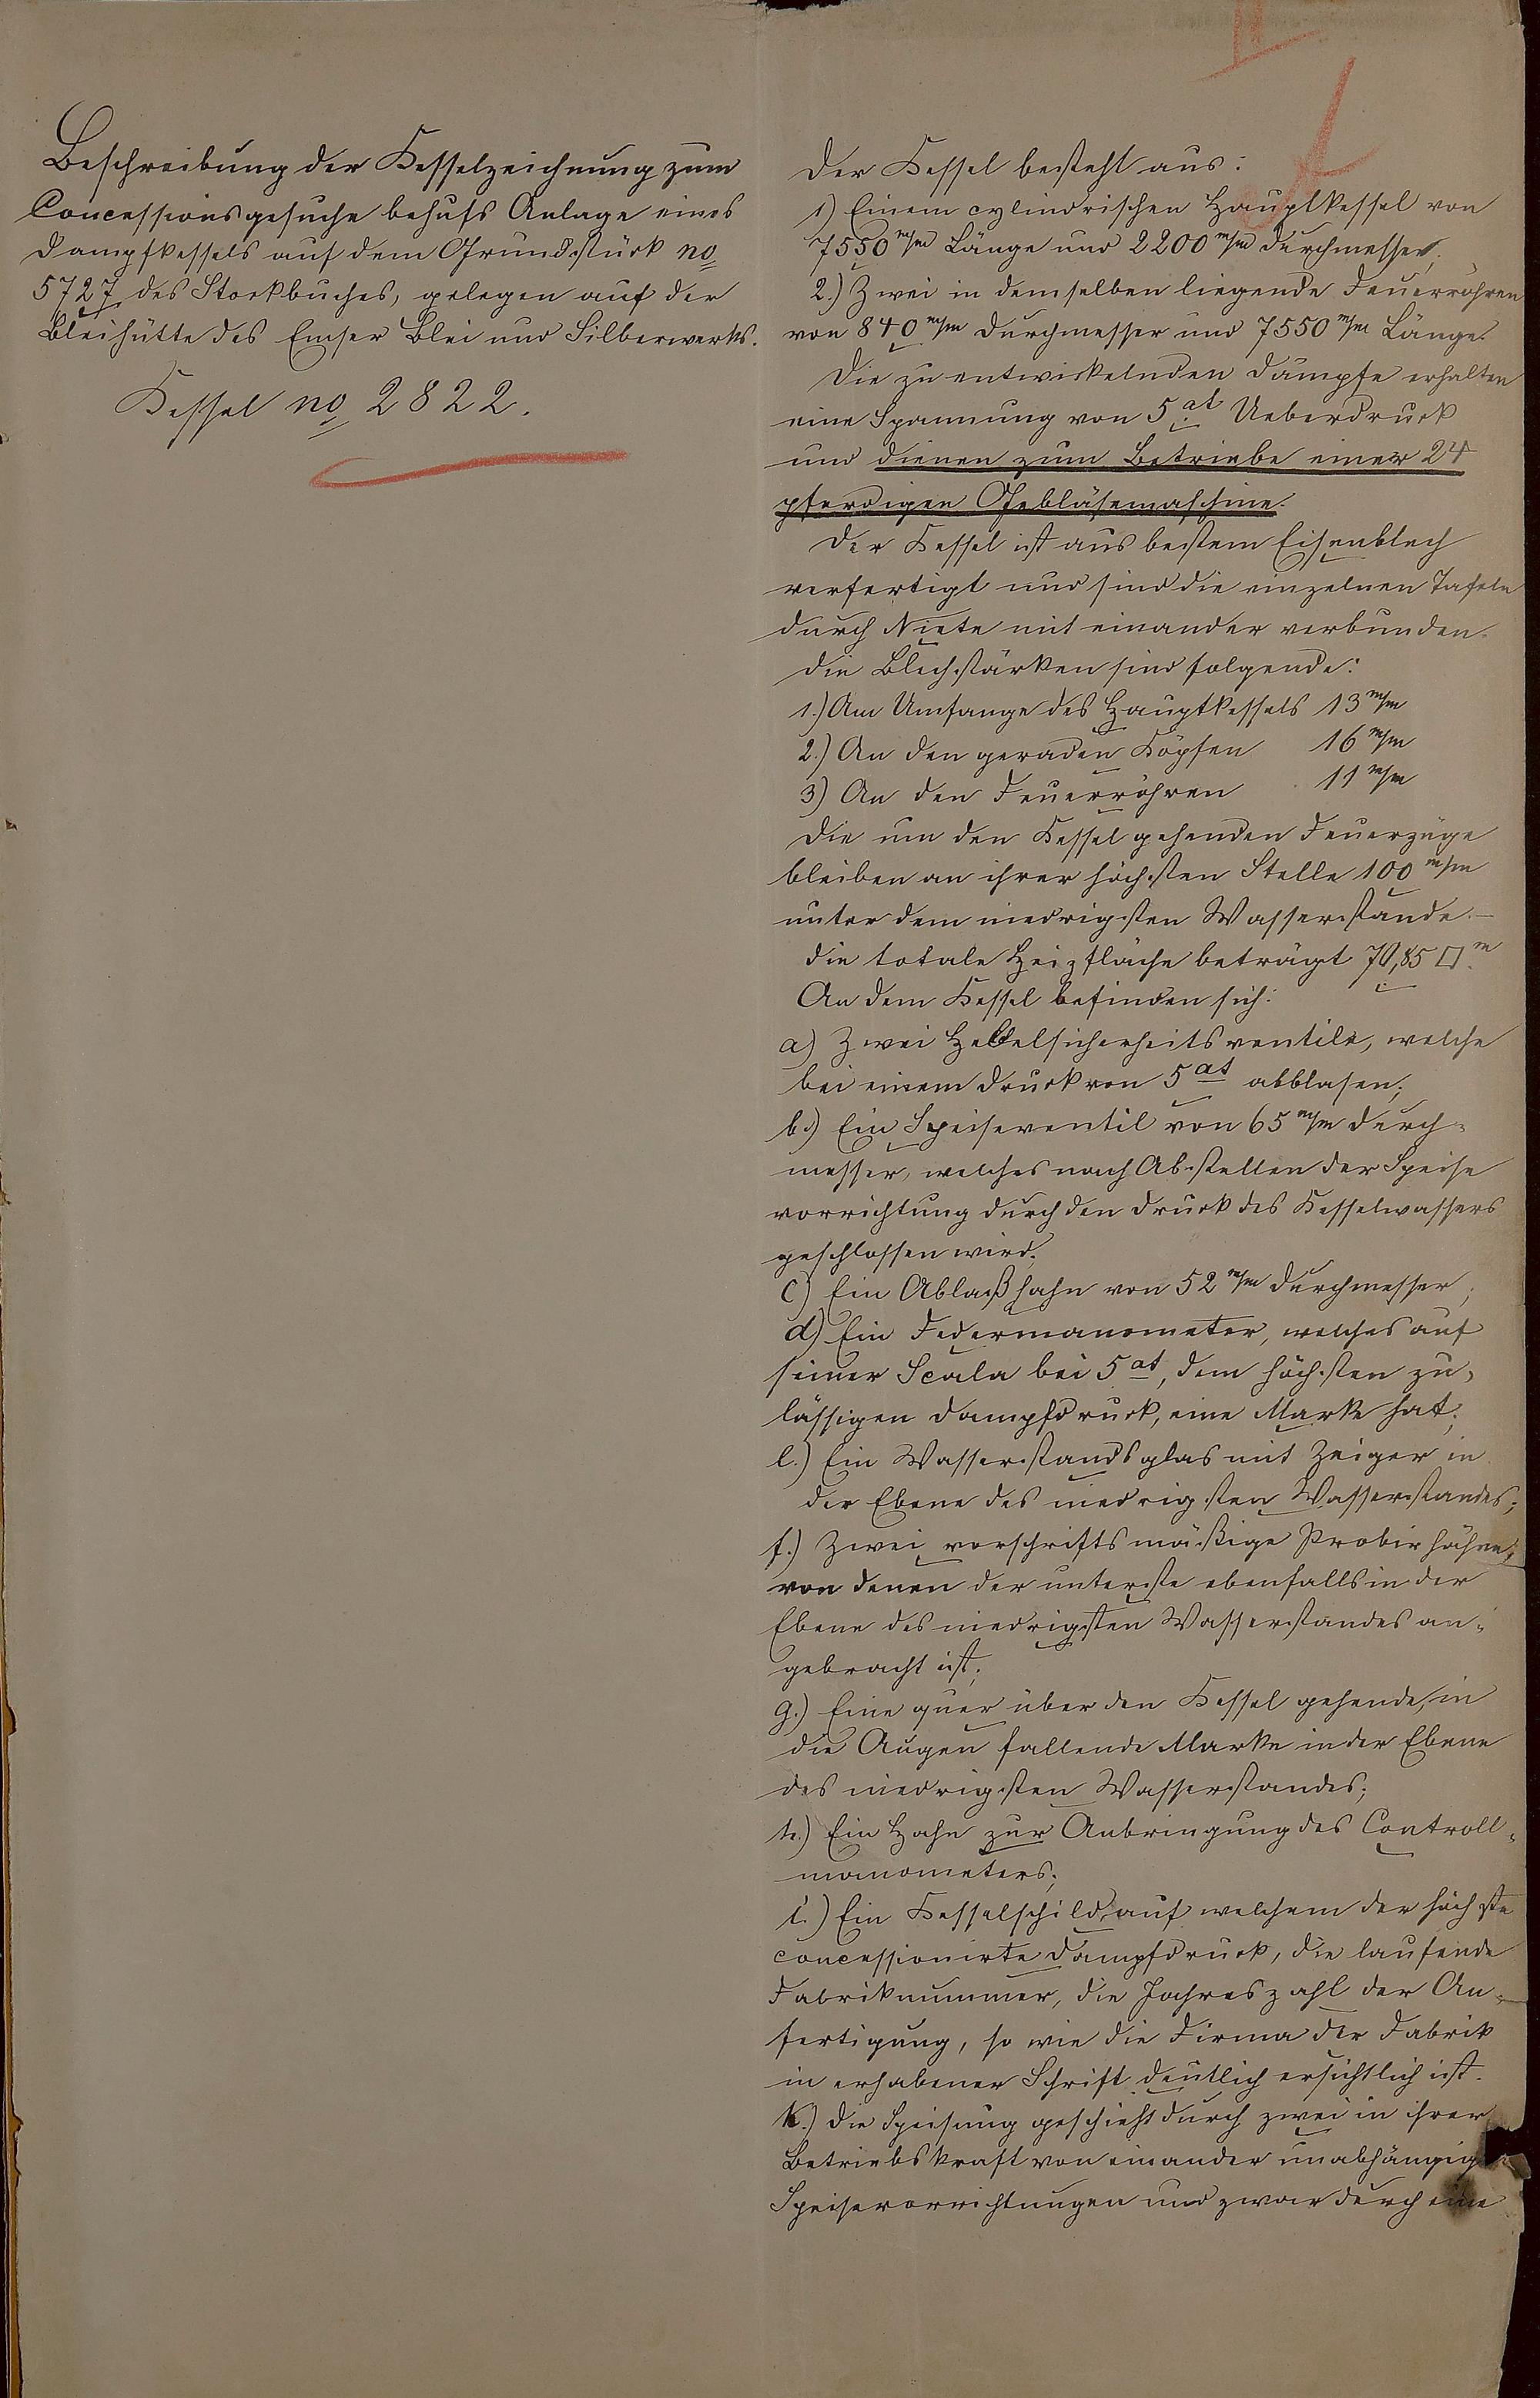 Beschreibung der Kesselzeichnung zum
Concessionsgesuche behufs Anlage eines
Dampfkessels auf dem Grundstück no
5727 des Stockbuches, gelegen auf der
Bleihütte des Emser Blei und Silberwerks.
Kessel no 2822.
Der Kessel besteht aus:
1) Einem cylindrischen Hauptkessel von
7550 m/m Länge und 2200 m/m Durchmesser,
2.) Zwei in demselben liegende Feuerröhren
von 840 m/m Durchmesser und 7550 m/m Länge.
Die zu entwickelnden Dämpfe erhalten
eine Spannung von 5 at Ueberdruck
und dienen zum Betriebe einer 24
pferdigen Gebläsemaschine.
Der Kessel ist aus bestem Eisenblech
verfertigt und sind die einzelnen Tafeln
durch Niete mit einander verbunden.
Die Blechstärken sind folgende:
1.) Am Umfange des Hauptkessels 13 m/m
2.) An den geraden Köpfen 16 m/m
3) An den Feuerröhren 11 m/m
Die um den Kessel gehenden Feuerzüge
bleiben an ihrer höchsten Stelle 100 m/m
unter dem niedrigsten Wasserstande.–
Die totale Heizfläche beträgt 70,85 □m.
An dem Kessel befinden sich:
a) Zwei Hebelsicherheitsventile, welche
bei einem Druck von 5 at abblasen;
b.) Ein Speiseventil von 65 m/m Durch-
messer, welches nach Abstellen der Speise
vorrichtung durch den Druck des Kesselwassers
geschlossen wird;
c) Ein Ablaßhahn von 52 m/m Durchmesser;
d) Ein Federmanometer, welches auf
seiner Scala bei 5 at, dem höchsten zu-
lässigen Dampfdruck, eine Marke hat;
e.) Ein Wasserstandsglas mit Zeiger in
der Ebene des niedrigsten Wasserstandes;
f.) Zwei vorschriftsmäßige Probirhähne,
von denen der unterste ebenfalls in der
Ebene des niedrigsten Wasserstandes an-
gebracht ist;
g.) Eine quer über den Kessel gehende, in
die Augen fallende Marke in der Ebene
des niedrigsten Wasserstandes;
h.) Ein Hahn zur Anbringung des Controll-
manometers;
i.) Ein Kesselschild, auf welchem der höchste
concessionirte Dampfdruck, die laufende
Fabriknummer, die Jahreszahl der An-
fertigung, so wie die Firma der Fabrik
in erhabener Schrift deutlich ersichtlich ist.
k.) Die Speisung geschieht durch zwei in ihrer
Betriebskraft von einander unabhängige
Speisevorrichtungen und zwar durch eine